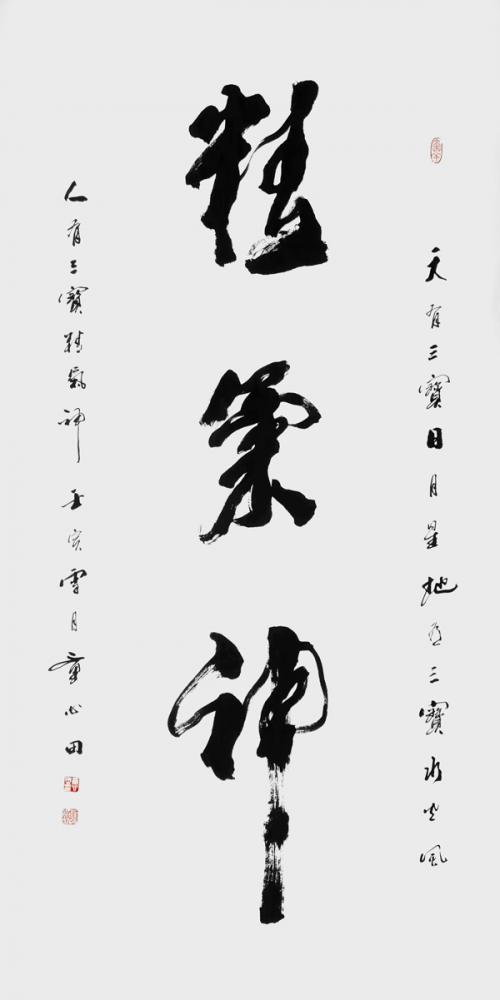 天有三寶日月星地有三寶水火風
精氣神
人有三寶精氣神 壬寅雪月童心田